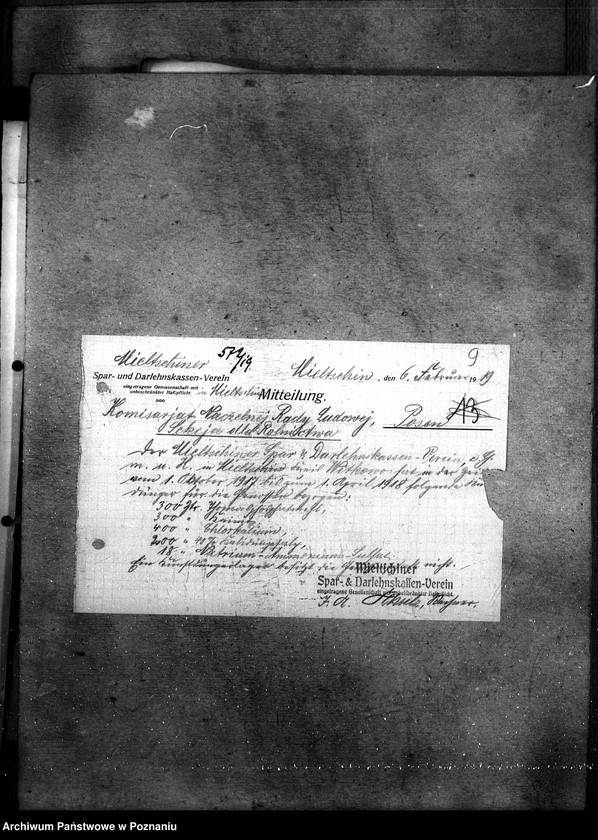 9
Mieltschiner 572/19
Spar- und Darlehnskassen-Verein
eingetragene Genossenschaft mit
unbeschränkter Haftpflicht. in Mieltschin
Mieltschin, den 6. Februar 1919
Mitteilung.
Komisarjat Naczelnej Rady Ludowej, Posen
Sekcja dla Rolnictwa
Der Mieltschiner Spar & Darlehnskassen-Verein, e. G.
m. u. H. in Mieltschin Witkowo hat in der Zeit
vom 1. Oktober 1917 bis zum 1. April 1918 folgende
dünger für die Genossen bezogen:
300 Ztr. Thomasphosphatmehl,
300 " Kainit
400 " Chlorkalium,
200 " 40% Kalidüngesalz,
18 " Natrium-Ammonium-Sulfat.
Ein Kunstdüngerlager besitzt die nicht.
Mieltschiner
Spar- & Darlehnskassen-Verein
eingetragene Genossenschaft mit unbeschränkter Haftpflicht.
Rechner.
Archiwum Państwowe w Poznaniu